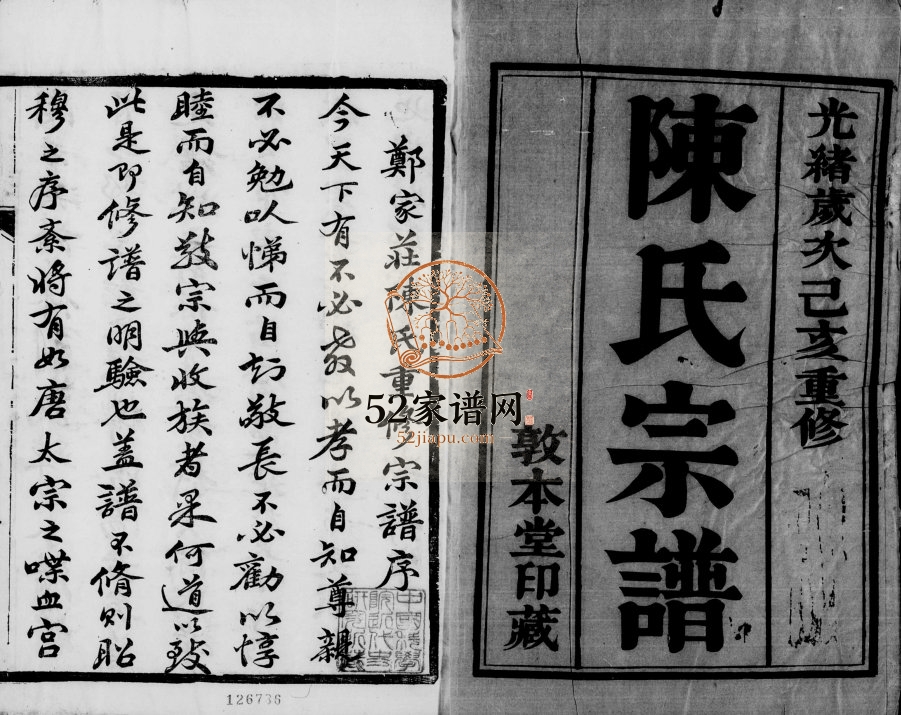 光緒歲次己亥重修
陳氏宗譜
敦本堂印藏
鄭家莊陳氏重修宗譜序
今天下有不必教以孝而自知尊親
不必勉以悌而自知敬長不必勸以惇
睦而自知敬宗與收族者果何道以致
此是即修譜之明驗也蓋譜不脩則昭
穆之序紊將有如唐太宗之喋血宮
52家谱网
52jiapu.com
126736